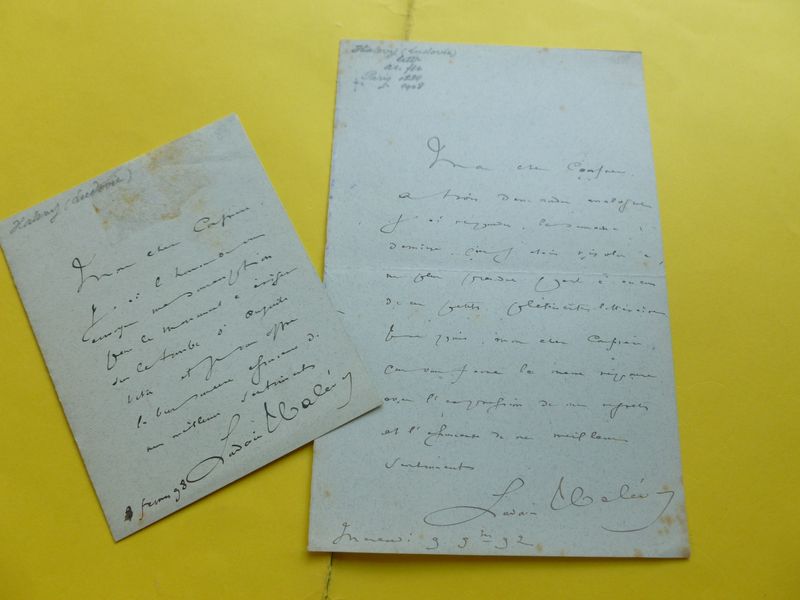 Halévy (Ludovic)
Mon cher Confrère,
J'ai l'honneur de vous
envoyer ma souscription
pour le monument à ériger
sur la tombe d'Auguste
Vitu et je vous offre
la bien sincère assurance de
mes meilleurs sentiments
Ludovic Halévy
février 98
Halévy (Ludovic)
Paris
1908
Mon cher Confrère,
A trois demandes analogues
j'ai répondu, la semaine
dernière, que j'étais résolu à
ne plus prendre part à aucun
de ces petits plébiscites littéraires
mon cher Confrère,
la même réponse
avec l'expression de mes regrets
et l'assurance de mes meilleurs
sentiments
Ludovic Halévy
Mercredi 9 9bre 92